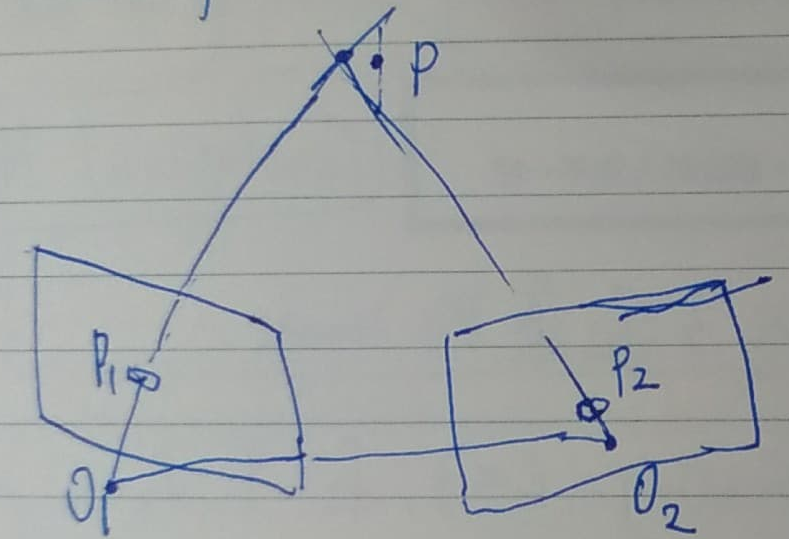 P
P1
P2
O1
O2